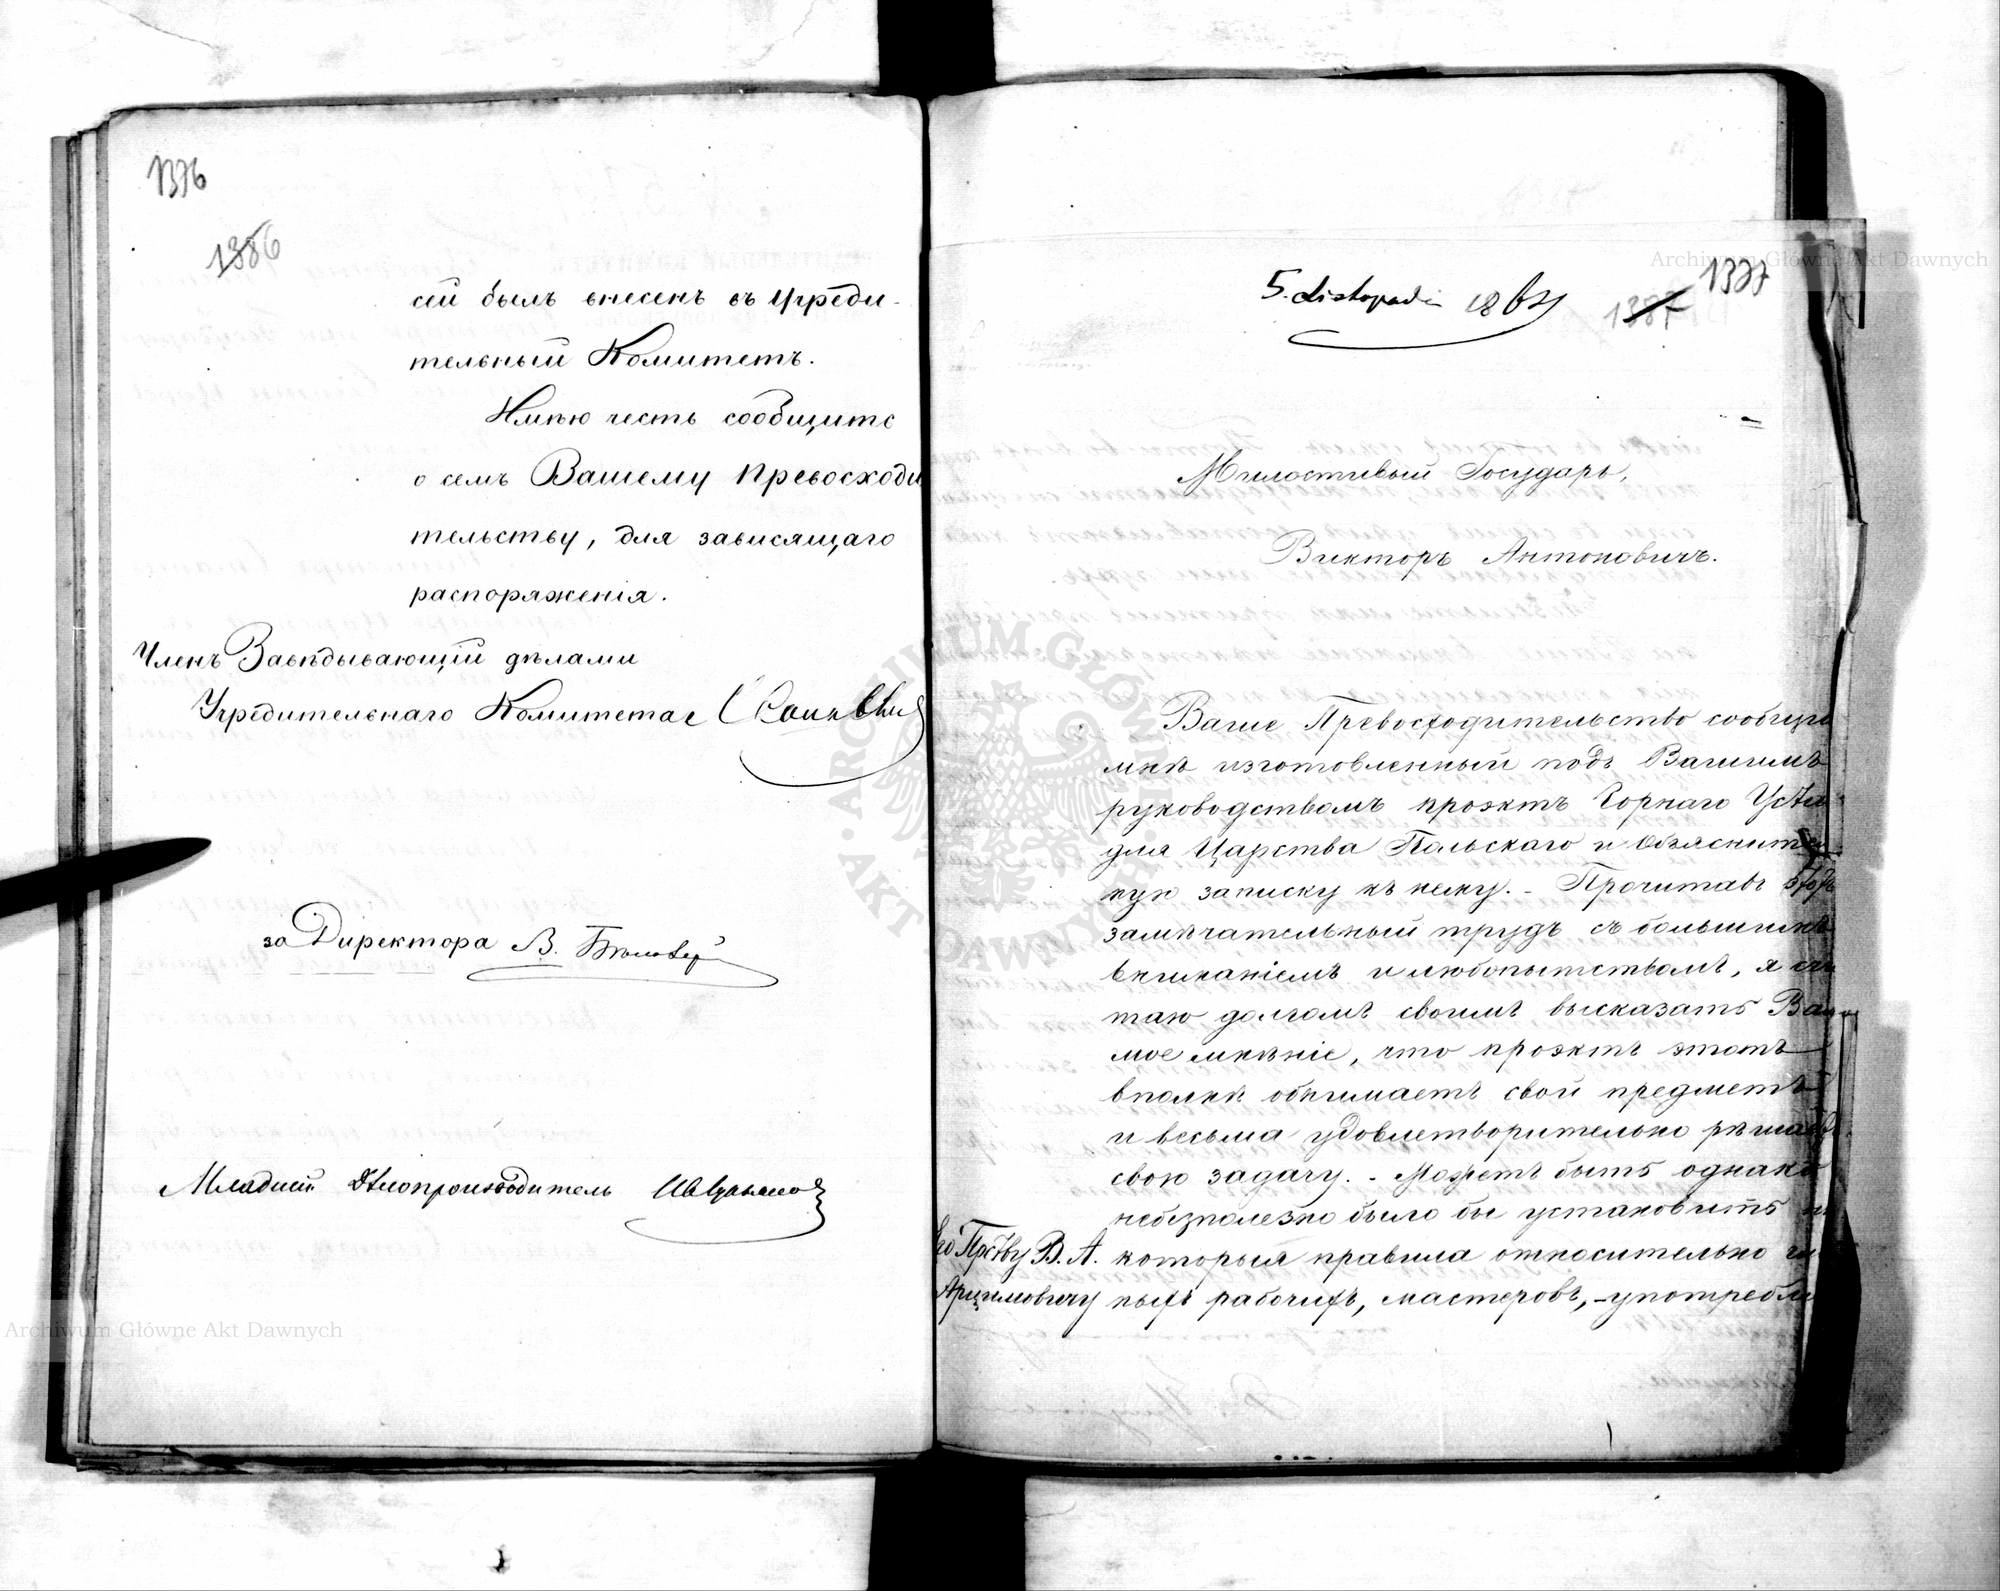 1376
1386
сей былъ внесенъ въ Учреди-
тельный Комитетъ.
Имѣю честь сообщить
о семъ Вашему Превосходи
тельству, для зависящаго
распоряженія.
Членъ Завѣдывающій дѣлами
Учредительнаго Комитета
за Директора В.
Младшій Дѣлопроизводитель
Archiwum Główne Akt Dawnych
Archiwum Główne Akt Dawnych
1377
5. listopada 1864
1387
Милостивый Государь,
Викторъ Антоновичъ.
Ваше Превосходительство сообщи
мнѣ изготовленный подъ Вашимъ
руководствомъ проэктъ Горнаго Уста
для Царства Польскаго и Объяснитель
ную записку къ нему. - Прочитавъ этотъ
замѣчательный трудъ съ большимъ
вниманіемъ и любопытствомъ, я счи
таю долгомъ своимъ высказать Вамъ
мое мнѣніе, что проэктъ этотъ
вполнѣ обнимаетъ свой предметъ
и весьма удовлетворительно рѣшаетъ
свою задачу. - Можетъ быть однако
небезполезно было бы установить нѣ
которыя правила относительно
ныхъ рабочихъ, мастеровъ, употребля
Его Прѣтву В. А.
Арцимовичу
ARCHIWUM GŁÓWNE · AKT DAWNYCH ·